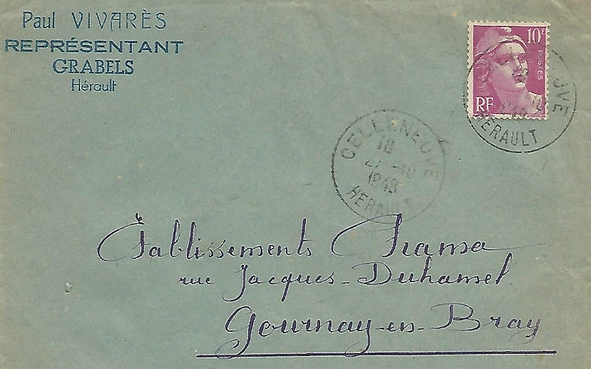 Paul VIVARÈS
REPRÉSENTANT
GRABELS
Hérault
10F
POSTES
RF
UVE
HÉRAULT
CELLENEUVE
18
27 -10
1948
HÉRAULT
Établissements
rue Jacques-Duhamel
Gournay-en-Bray